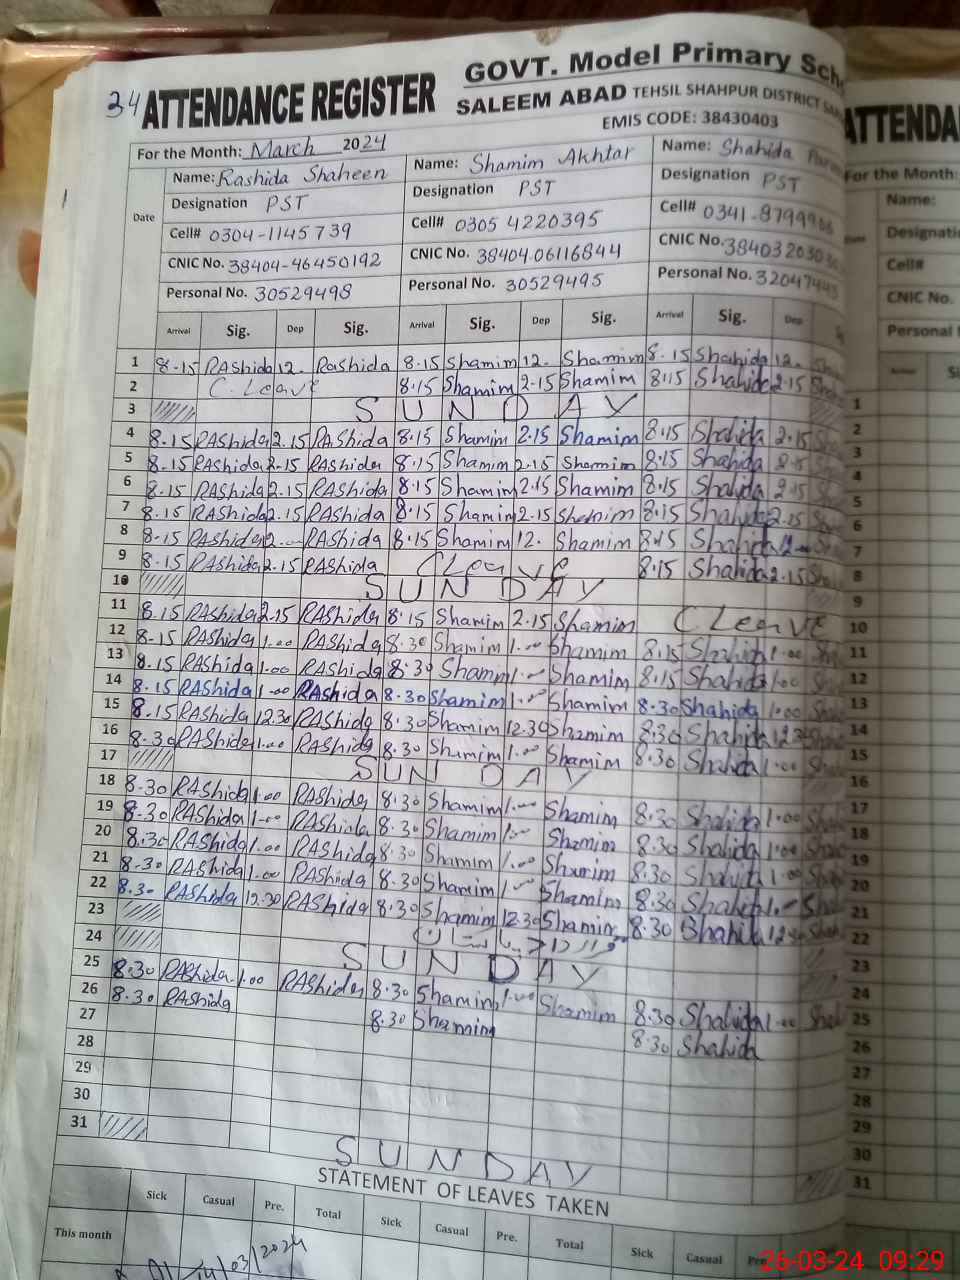 34 ATTENDANCE REGISTER GOVT. Model Primary Sch
SALEEM ABAD TEHSIL SHAHPUR DISTRICT
EMIS CODE: 38430403
For the Month: March 2024
Date
Name: Rashida Shaheen Name: Shamim Akhtar Name: Shahida
Designation PST Designation PST Designation PST
Cell# 0304-1145739 Cell# 0305 4220395 Cell# 0341-8799906
CNIC No. 38404-46450192 CNIC No. 38404.06116844 CNIC No.
Personal No. 30529498 Personal No. 30529495 Personal No.
Arrival Sig. Dep Sig. Arrival Sig. Dep Sig. Arrival Sig. Dep
1 8.15 RAShida 12. Rashida 8.15 Shamim 12. Shamim 8.15 Shahida 12.
2 C. Leave 8.15 Shamim 2.15 Shamim 8.15 Shahida 2.15
3 SUNDAY
4 8.15 RAShida 2.15 RAShida 8.15 Shamim 2.15 Shamim 8.15 Shahida 2.15
5 8.15 RAShida 2.15 RAShida 8.15 Shamim 2.15 Shamim 8.15 Shahida 2.15
6 8.15 RAShida 2.15 RAShida 8.15 Shamim 2.15 Shamim 8.15 Shahida 2.15
7 8.15 RAShida 2.15 RAShida 8.15 Shamim 2.15 Shamim 8.15 Shahida 2.15
8 8.15 RAShida 12. RAShida 8.15 Shamim 12. Shamim 8.15 Shahida 12
9 8.15 RAShida 2.15 RAShida C Leave 8.15 Shahida 2.15
10 SUNDAY
11 8.15 RAShida 2.15 RAShida 8.15 Shamim 2.15 Shamim C Leave
12 8.15 RAShida 1.00 RAShida 8.30 Shamim 1.00 Shamim 8.15 Shahida 1.00
13 8.15 RAShida 1.00 RAShida 8.30 Shamim 1.00 Shamim 8.15 Shahida 1.00
14 8.15 RAShida 1.00 RAShida 8.30 Shamim 1.00 Shamim 8.30 Shahida 1.00
15 8.15 RAShida 12.30 RAShida 8.30 Shamim 12.30 Shamim 8.30 Shahida 12.30
16 8.30 RAShida 1.00 RAShida 8.30 Shamim 1.00 Shamim 8.30 Shahida 1.00
17 SUNDAY
18 8.30 RAShida 1.00 RAShida 8.30 Shamim 1.00 Shamim 8.30 Shahida 1.00
19 8.30 RAShida 1.00 RAShida 8.30 Shamim 1.00 Shamim 8.30 Shahida 1.00
20 8.30 RAShida 1.00 RAShida 8.30 Shamim 1.00 Shamim 8.30 Shahida 1.00
21 8.30 RAShida 1.00 RAShida 8.30 Shamim 1.00 Shamim 8.30 Shahida 1.00
22 8.30 RAShida 12.30 RAShida 8.30 Shamim 12.30 Shamim 8.30 Shahida 12.30
23 قرارداد پاکستان
24 SUNDAY
25 8.30 RAShida 1.00 RAShida 8.30 Shamim 1.00 Shamim 8.30 Shahida 1.00
26 8.30 RAShida 8.30 Shamim 8.30 Shahida
27
28
29
30
31 SUNDAY
STATEMENT OF LEAVES TAKEN
Sick Casual Pre. Total Sick Casual Pre. Total Sick Casual Pre
This month
/03/2024
ATTENDA
For the Month:
Name:
Designati
Cell#
CNIC No.
Personal
1
2
3
4
5
6
7
8
9
10
11
12
13
14
15
16
17
18
19
20
21
22
23
24
25
26
27
28
29
30
31
26-03-24 09:29